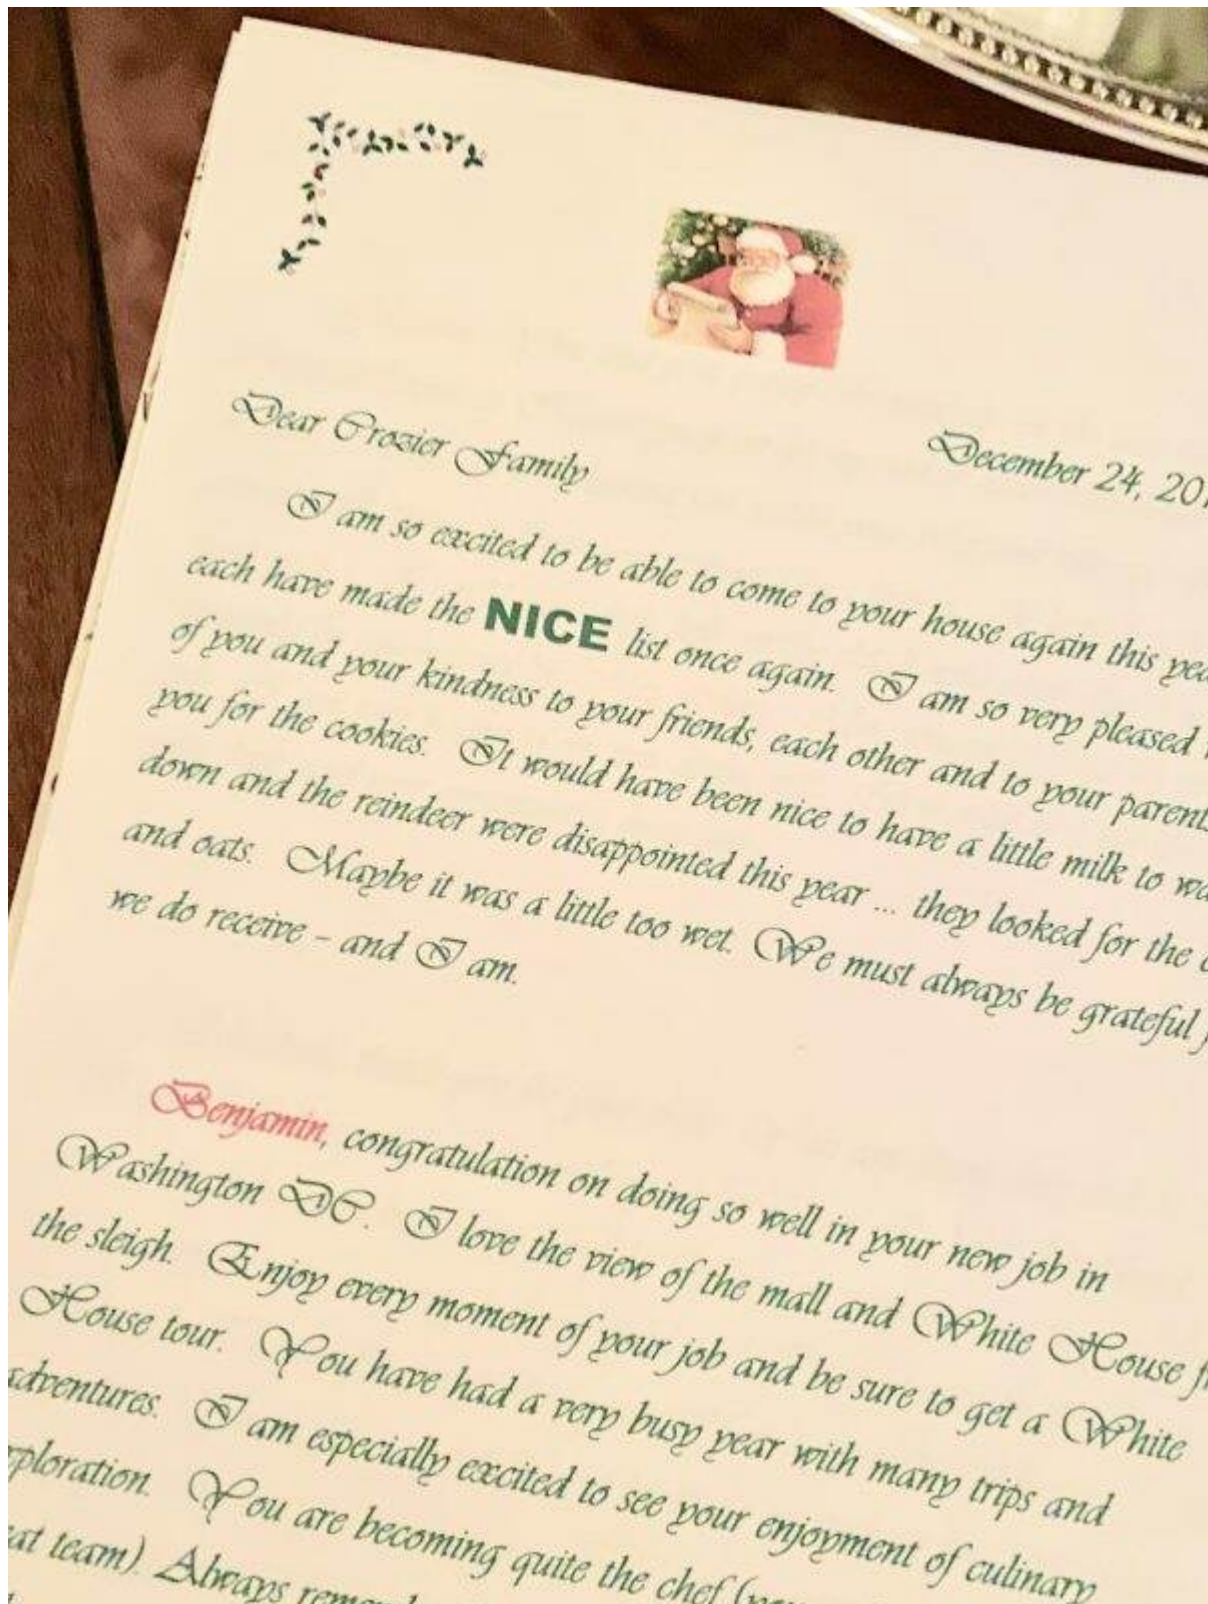 December 24,
Dear Crozier Family
I am so excited to be able to come to your house again this
each have made the NICE list once again. I am so very pleased
of you and your kindness to your friends, each other and to your
you for the cookies. It would have been nice to have a little milk to
down and the reindeer were disappointed this year ... they looked for the
and oats. Maybe it was a little too wet. We must always be grateful
we do receive - and I am.
Benjamin, congratulation on doing so well in your new job in
Washington DC. I love the view of the mall and White House
the sleigh. Enjoy every moment of your job and be sure to get a White
House tour. You have had a very busy year with many trips and
adventures. I am especially excited to see your enjoyment of culinary
You are becoming quite the chef
team). Always